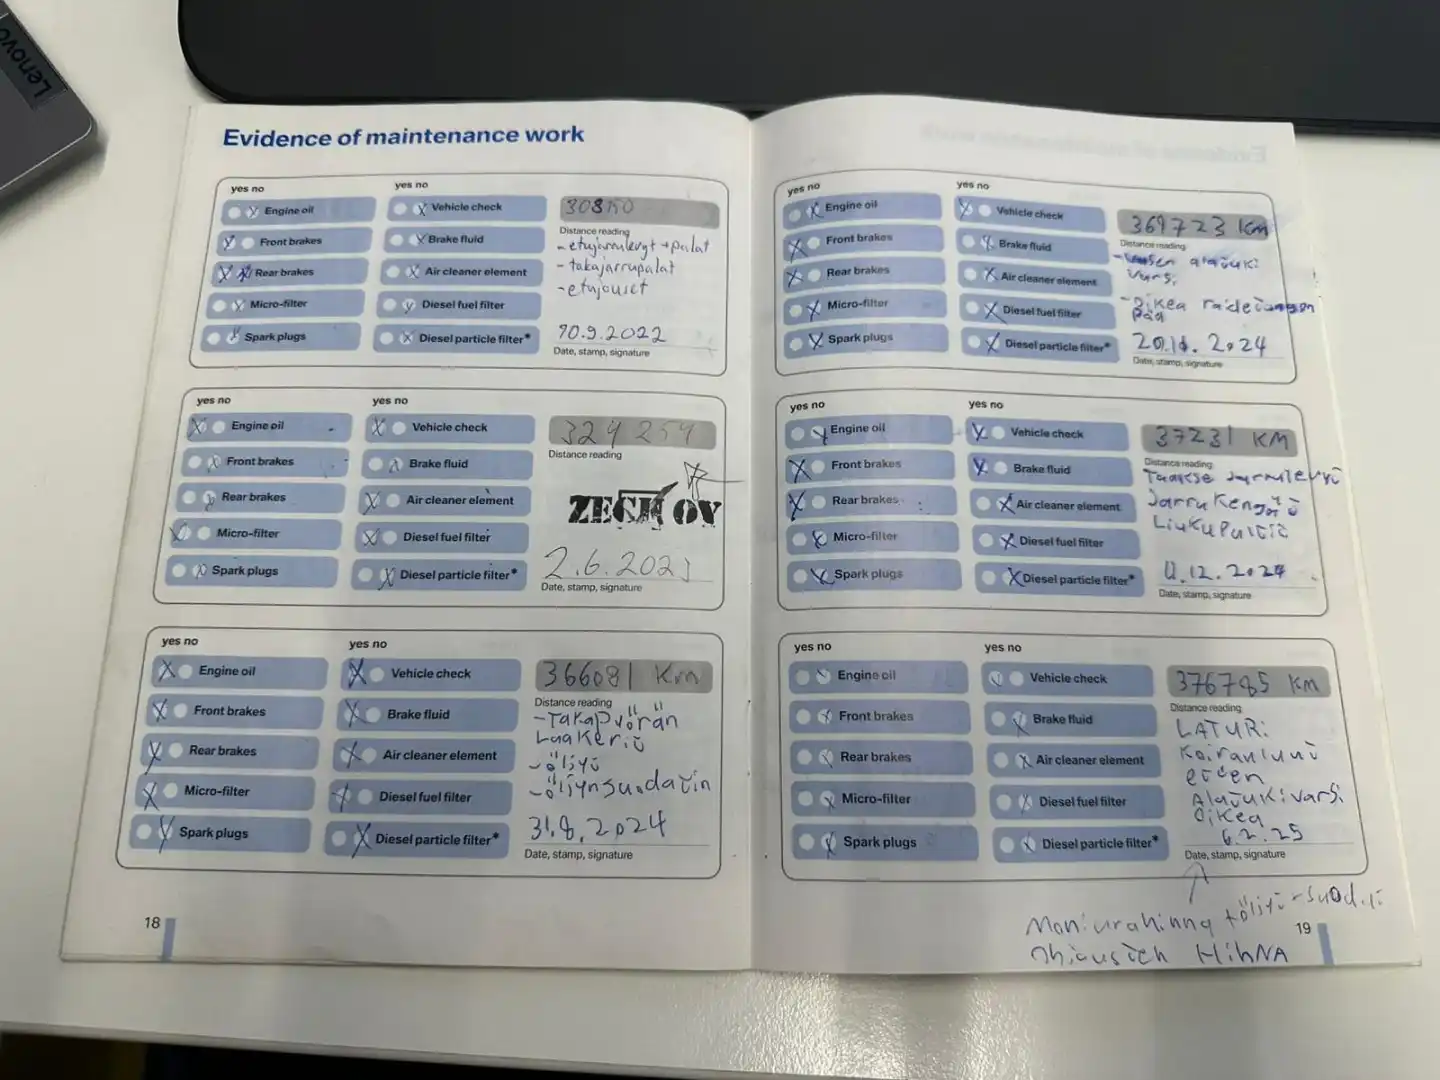 Lenovo
Evidence of maintenance work
yes no
yes no
Engine oil
Vehicle check
Front brakes
Brake fluid
Rear brakes
Air cleaner element
Micro-filter
Diesel fuel filter
Spark plugs
Diesel particle filter*
Distance reading
-etujarrulevyt+palat
-takajarrupalat
-etujouset
10.9.2022
Date, stamp, signature
yes no
yes no
Engine oil
Vehicle check
Front brakes
Brake fluid
Rear brakes
Air cleaner element
Micro-filter
Diesel fuel filter
Spark plugs
Diesel particle filter*
324 259
Distance reading
2.6.2023
Date, stamp, signature
yes no
yes no
Engine oil
Vehicle check
Front brakes
Brake fluid
Rear brakes
Air cleaner element
Micro-filter
Diesel fuel filter
Spark plugs
Diesel particle filter*
366081 Km
Distance reading
-Takapyörän
Laakeriü
-öljyü
-öljynsuodatin
31.8.2024
Date, stamp, signature
18
yes no
yes no
Engine oil
Vehicle check
Front brakes
Brake fluid
Rear brakes
Air cleaner element
Micro-filter
Diesel fuel filter
Spark plugs
Diesel particle filter*
369723 Km
Distance reading
-Vasen alatuki
varsi
-Oikea raidetangon
pää
2024
Date, stamp, signature
yes no
yes no
Engine oil
Vehicle check
Front brakes
Brake fluid
Rear brakes
Air cleaner element
Micro-filter
Diesel fuel filter
Spark plugs
Diesel particle filter*
37231 KM
Distance reading
Taakse Jarrulevyt
Jarrukengät
12.2024
Date, stamp, signature
yes no
yes no
Engine oil
Vehicle check
Front brakes
Brake fluid
Rear brakes
Air cleaner element
Micro-filter
Diesel fuel filter
Spark plugs
Diesel particle filter*
376785 KM
Distance reading
LATURi
Koiranluut
eteen
Alatukivarsi
Oikea
6.2.25
Date, stamp, signature
Moniurahihna
Ohjausteh HihNA
19